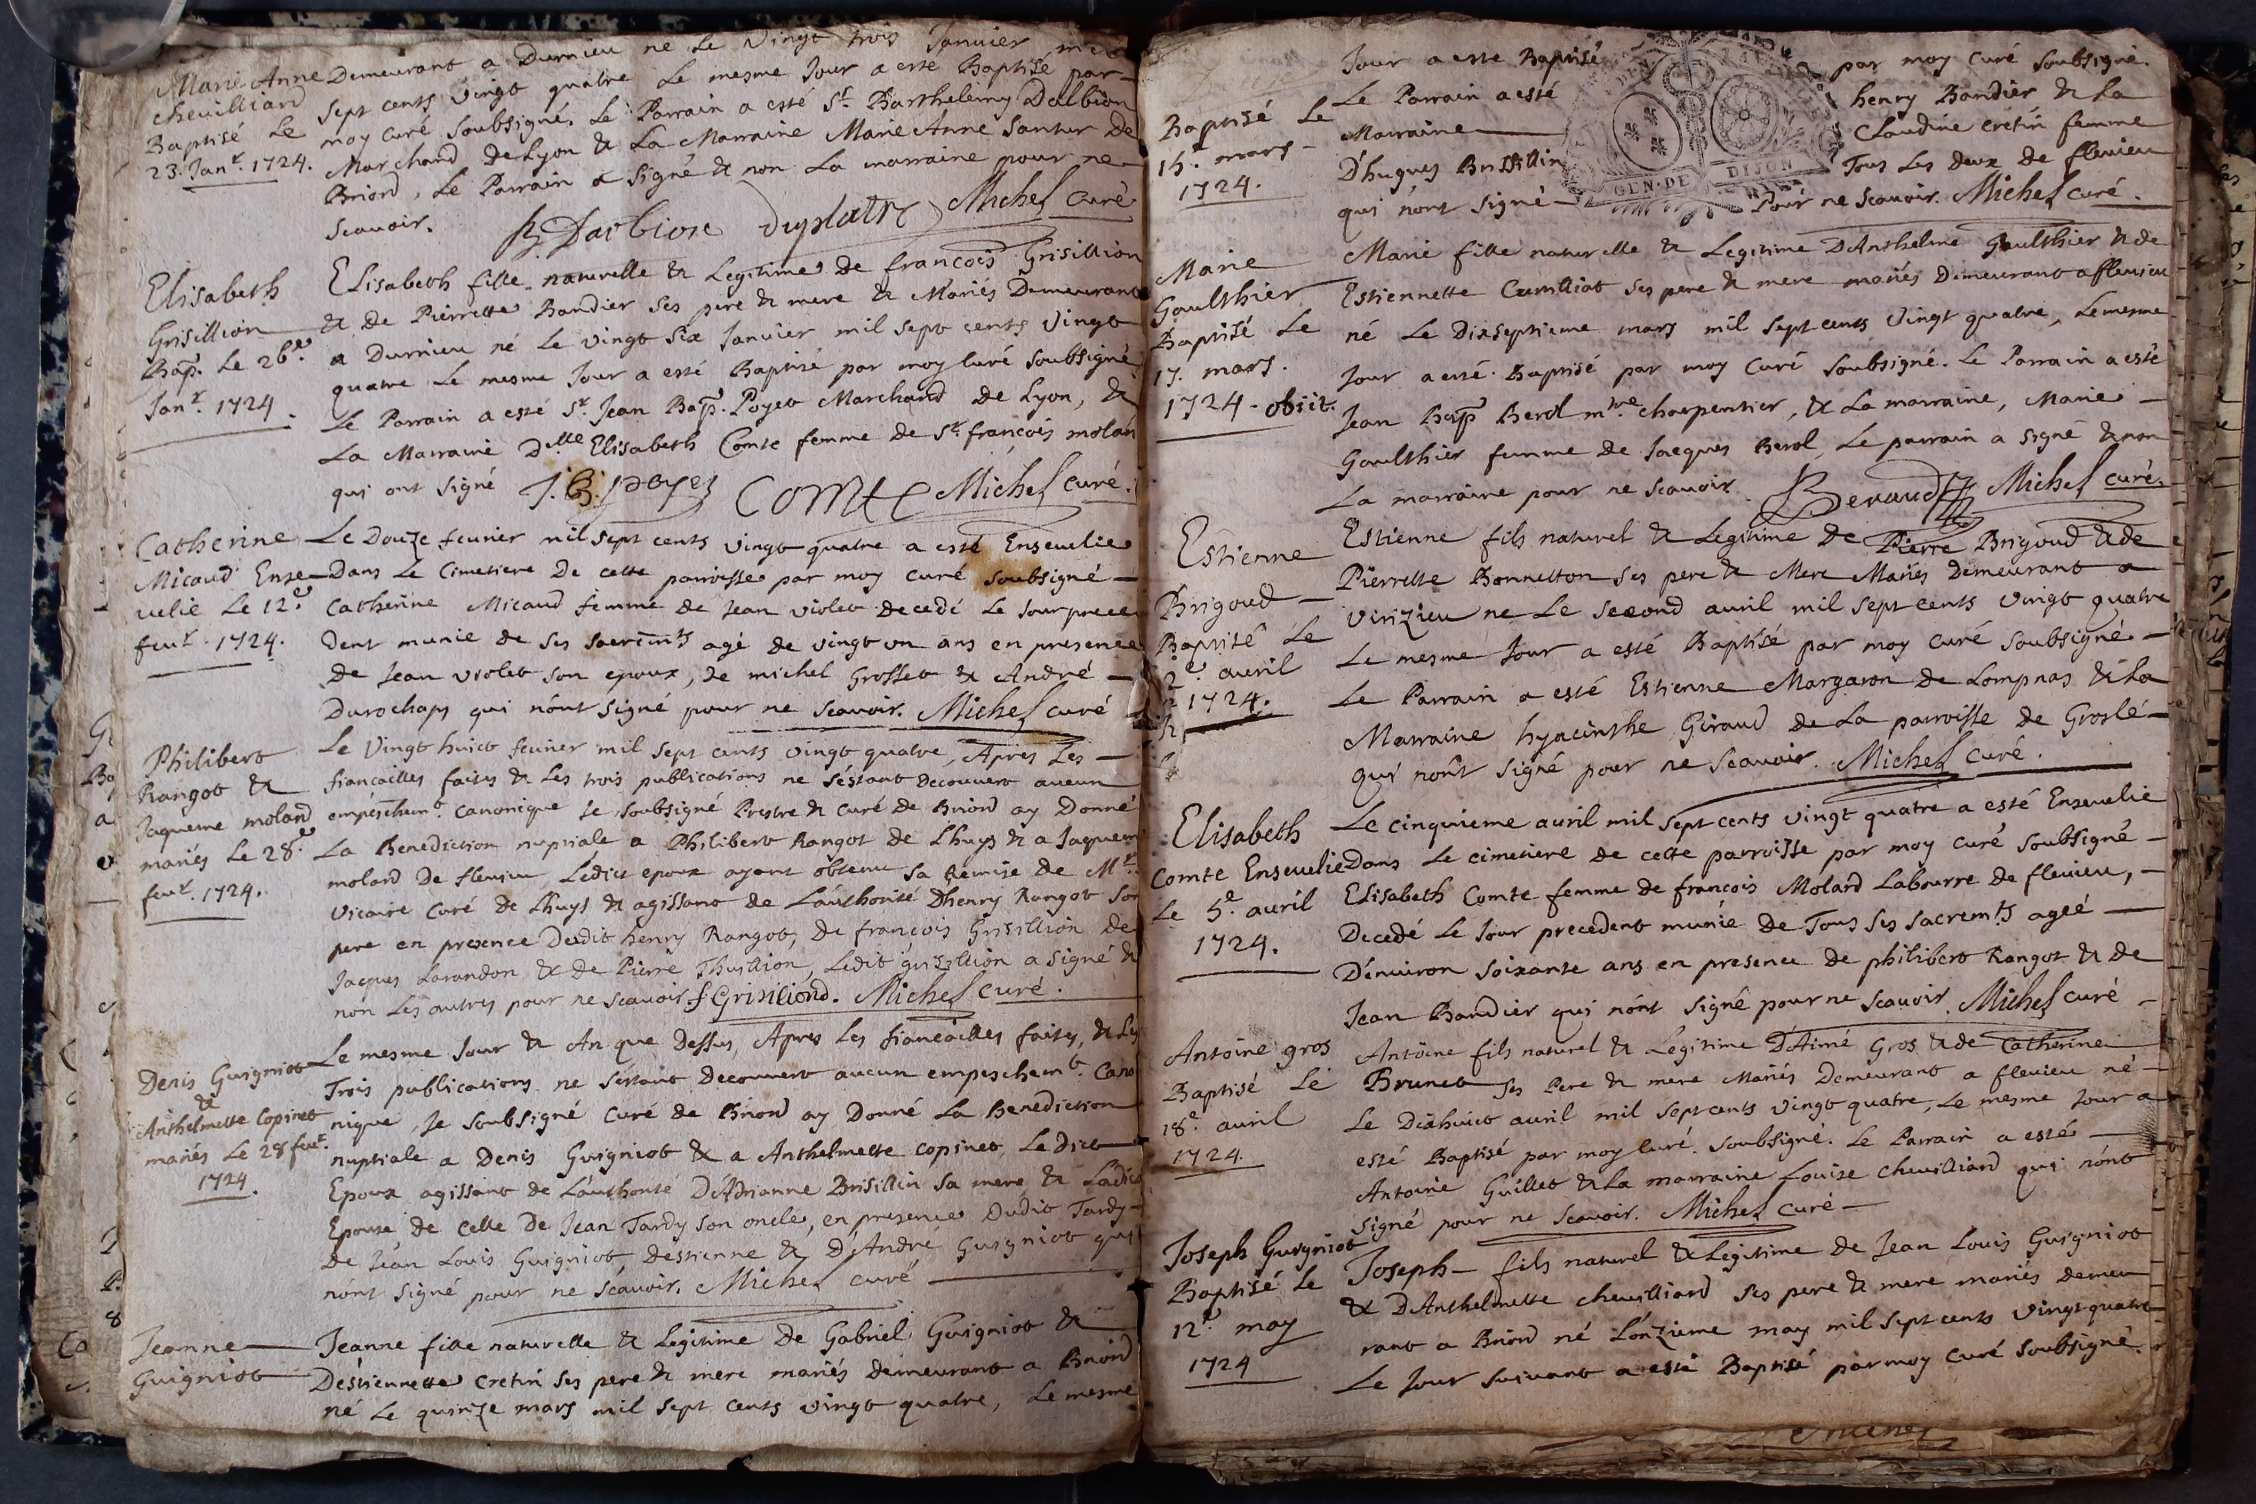 Marie Anne
Cheuilliard
Baptisé Le
23. Janr. 1724.
Demeurant a Durnieu né Le Vingt trois Januier mil
Sept cents Vingt quatre Le mesme Jour a esté Baptisé par
moy Curé Soubsigné. Le Parrain a esté Sr. Barthelemy Dalbion
Marchand de Lyon & La Marraine Marie Anne Santur De
Briord, Le Parrain a Signé & non La marraine pour ne
Scauoir. Michel Curé
Elisabeth
Grisillion
Bap. Le 26e
Janr. 1724
Elisabeth fille naturelle & Legitime de francois Grisillion
& de Pierrette Bandier Ses pere & mere & Mariés Demeurant
a Durnieu né Le vingt Six Januier mil Sept cents Vingt
quatre Le mesme Jour a esté Baptisé par moy Curé Soubsigné
Le Parrain a esté Sr. Jean Bap. Poyet Marchand de Lyon, &
La Marraine Dlle Elisabeth Comte femme de Sr. francois molard
qui ont Signé J. B. poyet Comte Michel Curé.
Catherine
Micaud Enseuelie
Le 12e
feur. 1724.
Le Douze feurier mil Sept cents Vingt quatre a esté Enseuelie
Dans Le Cimetiere De cette parroisse par moy curé Soubsigné
Catherine Micaud femme de Jean Violet decedé Le Jour prece
Dent munie de Ses Sacremts agé de vingt un ans en presence
de Jean Violet Son epoux, de michel Grosset & André
Durochaps qui nónt Signé pour ne Scauoir. Michel curé
Philibert
Rangot &
Jaqueme molard
mariés Le 28e
feur. 1724.
Le Vingt huict feurier mil Sept cents Vingt quatre, Apres Les
fiancailles faites & Les trois publications ne Séstant Decouuert aucun
empéschemt. canonique Je Soubsigné Prestre & curé de Briord ay Donné
La Benediction nuptiale a Philibert Rangot de Lhuys & a Jaqueme
molard De fleuieu, Ledict epoux ayant obtenu Sa Remise de Mr.
Vicaire Curé de Lhuys & agissant de Láuthorité Dhenry Rangot Son
pere en presence Dudit henry Rangot, de francois Grisillion de
Jacques Larandon & de Pierre Thuillion, Ledit grisillion a Signé &
non Les autres pour ne Scauoir. f Grisiliond. Michel Curé.
Denis Guigniot
&
Anthelmette Copinet
mariés Le 28 feur.
1724.
Le mesme Jour & An que Dessus, Apres Les fiancailles faites, & Les
Trois publications ne Séstant Decouuert aucun empeschemt. Cano
nique, Je Soubsigné Curé de Briord ay Donné La Benediction
nuptiale a Denis Guigniot & a Anthelmette Copinet, Le Dict
Epoux agissant de Láuthorité D'Adrianne Brisillin Sa mere & Ladicte
Epouse de Celle De Jean Tardy Son oncle, en presence Dudit Tardy
De Jean Louis Guigniot, destienne & d'Andre Guigniot qui
nónt Signé pour ne Scauoir. Michel curé
Jeanne
Guigniot
Jeanne fille naturelle & Legitime De Gabriel Guigniot &
Déstiennette Cretin Ses pere & mere mariés demeurant a Briord
né Le quinze mars mil Sept cents Vingt quatre, Le mesme
Baptisé Le
15e. mars
1724.
Jour a esté Baptisé par moy curé Soubsigné.
Le Parrain a esté henry Bandier & La
Marraine Claudine Cretin femme
D'hugues Brisillin Tous Les deux de fleuieu
qui nónt Signé Pour ne Scauoir. Michel Curé.
GEN. DE DIJON
Marie
Gaulthier
Baptisé Le
17. mars.
1724 - obiit.
Marie fille naturelle & Legitime D'Anthelme Gaulthier & de
Estiennette Ses pere & mere mariés Demeurant a fleuieu
né Le Dixseptieme mars mil Sept cents Vingt quatre, Le mesme
Jour a esté Baptisé par moy Curé Soubsigné. Le Parrain a esté
Jean Bap Berol mtre charpentier, & La marraine, Marie
Gaulthier femme de Jacques Berol, Le parrain a Signé & non
La marraine pour ne Scauoir. Beraud Michel curé.
Estienne
Brigoud
Baptisé Le
2e. auril
1724.
Estienne fils naturel & Legitime De Pierre Brigoud & de
Pierrette Bonnetton Ses pere & Mere Mariés Demeurant a
Virizieu né Le Second auril mil Sept cents Vingt quatre
Le mesme Jour a esté Baptisé par moy Curé Soubsigné
Le Parrain a esté Estienne Margaron de Lompnas & La
Marraine hyacinthe Giraud de La parroisse de Groslé
qui nónt Signé pour ne Scauoir. Michel Curé.
Elisabeth
Comte Enseuelie
Le 5e. auril
1724.
Le cinquieme auril mil Sept cents Vingt quatre a esté Enseuelie
Dans Le cimetiere de cette parroisse par moy curé Soubsigné
Elisabeth Comte femme de francois Molard Labourre de fleuieu,
Decedé Le Jour precedent munie de Tous Ses Sacremts ageé
D'enuiron Soixante ans en presence de philibert Rangot & de
Jean Bandier qui nónt Signé pour ne Scauoir. Michel Curé
Antoine gros
Baptisé Le
18e. auril
1724.
Antoine fils naturel & Legitime D'Aimé Gros & de Catherine
Brunet Ses Pere & mere Mariés Demeurant a fleuieu né
Le Dixhuict auril mil Sept cents Vingt quatre, Le mesme Jour a
esté Baptisé par moy Curé Soubsigné. Le Parrain a esté
Antoine Guillet & La marraine Louise Cheuilliard qui nónt
Signé pour ne Scauoir. Michel Curé
Joseph Guigniot
Baptisé Le
12e. may
1724
Joseph fils naturel & Legitime de Jean Louis Guigniot
& D'Anthelmette cheuilliard Ses pere & mere mariés Demeu
rant a Briord né Lónzieme may mil Sept cents Vingt quatre
Le Jour Suiuant a esté Baptisé par moy curé Soubsigné.